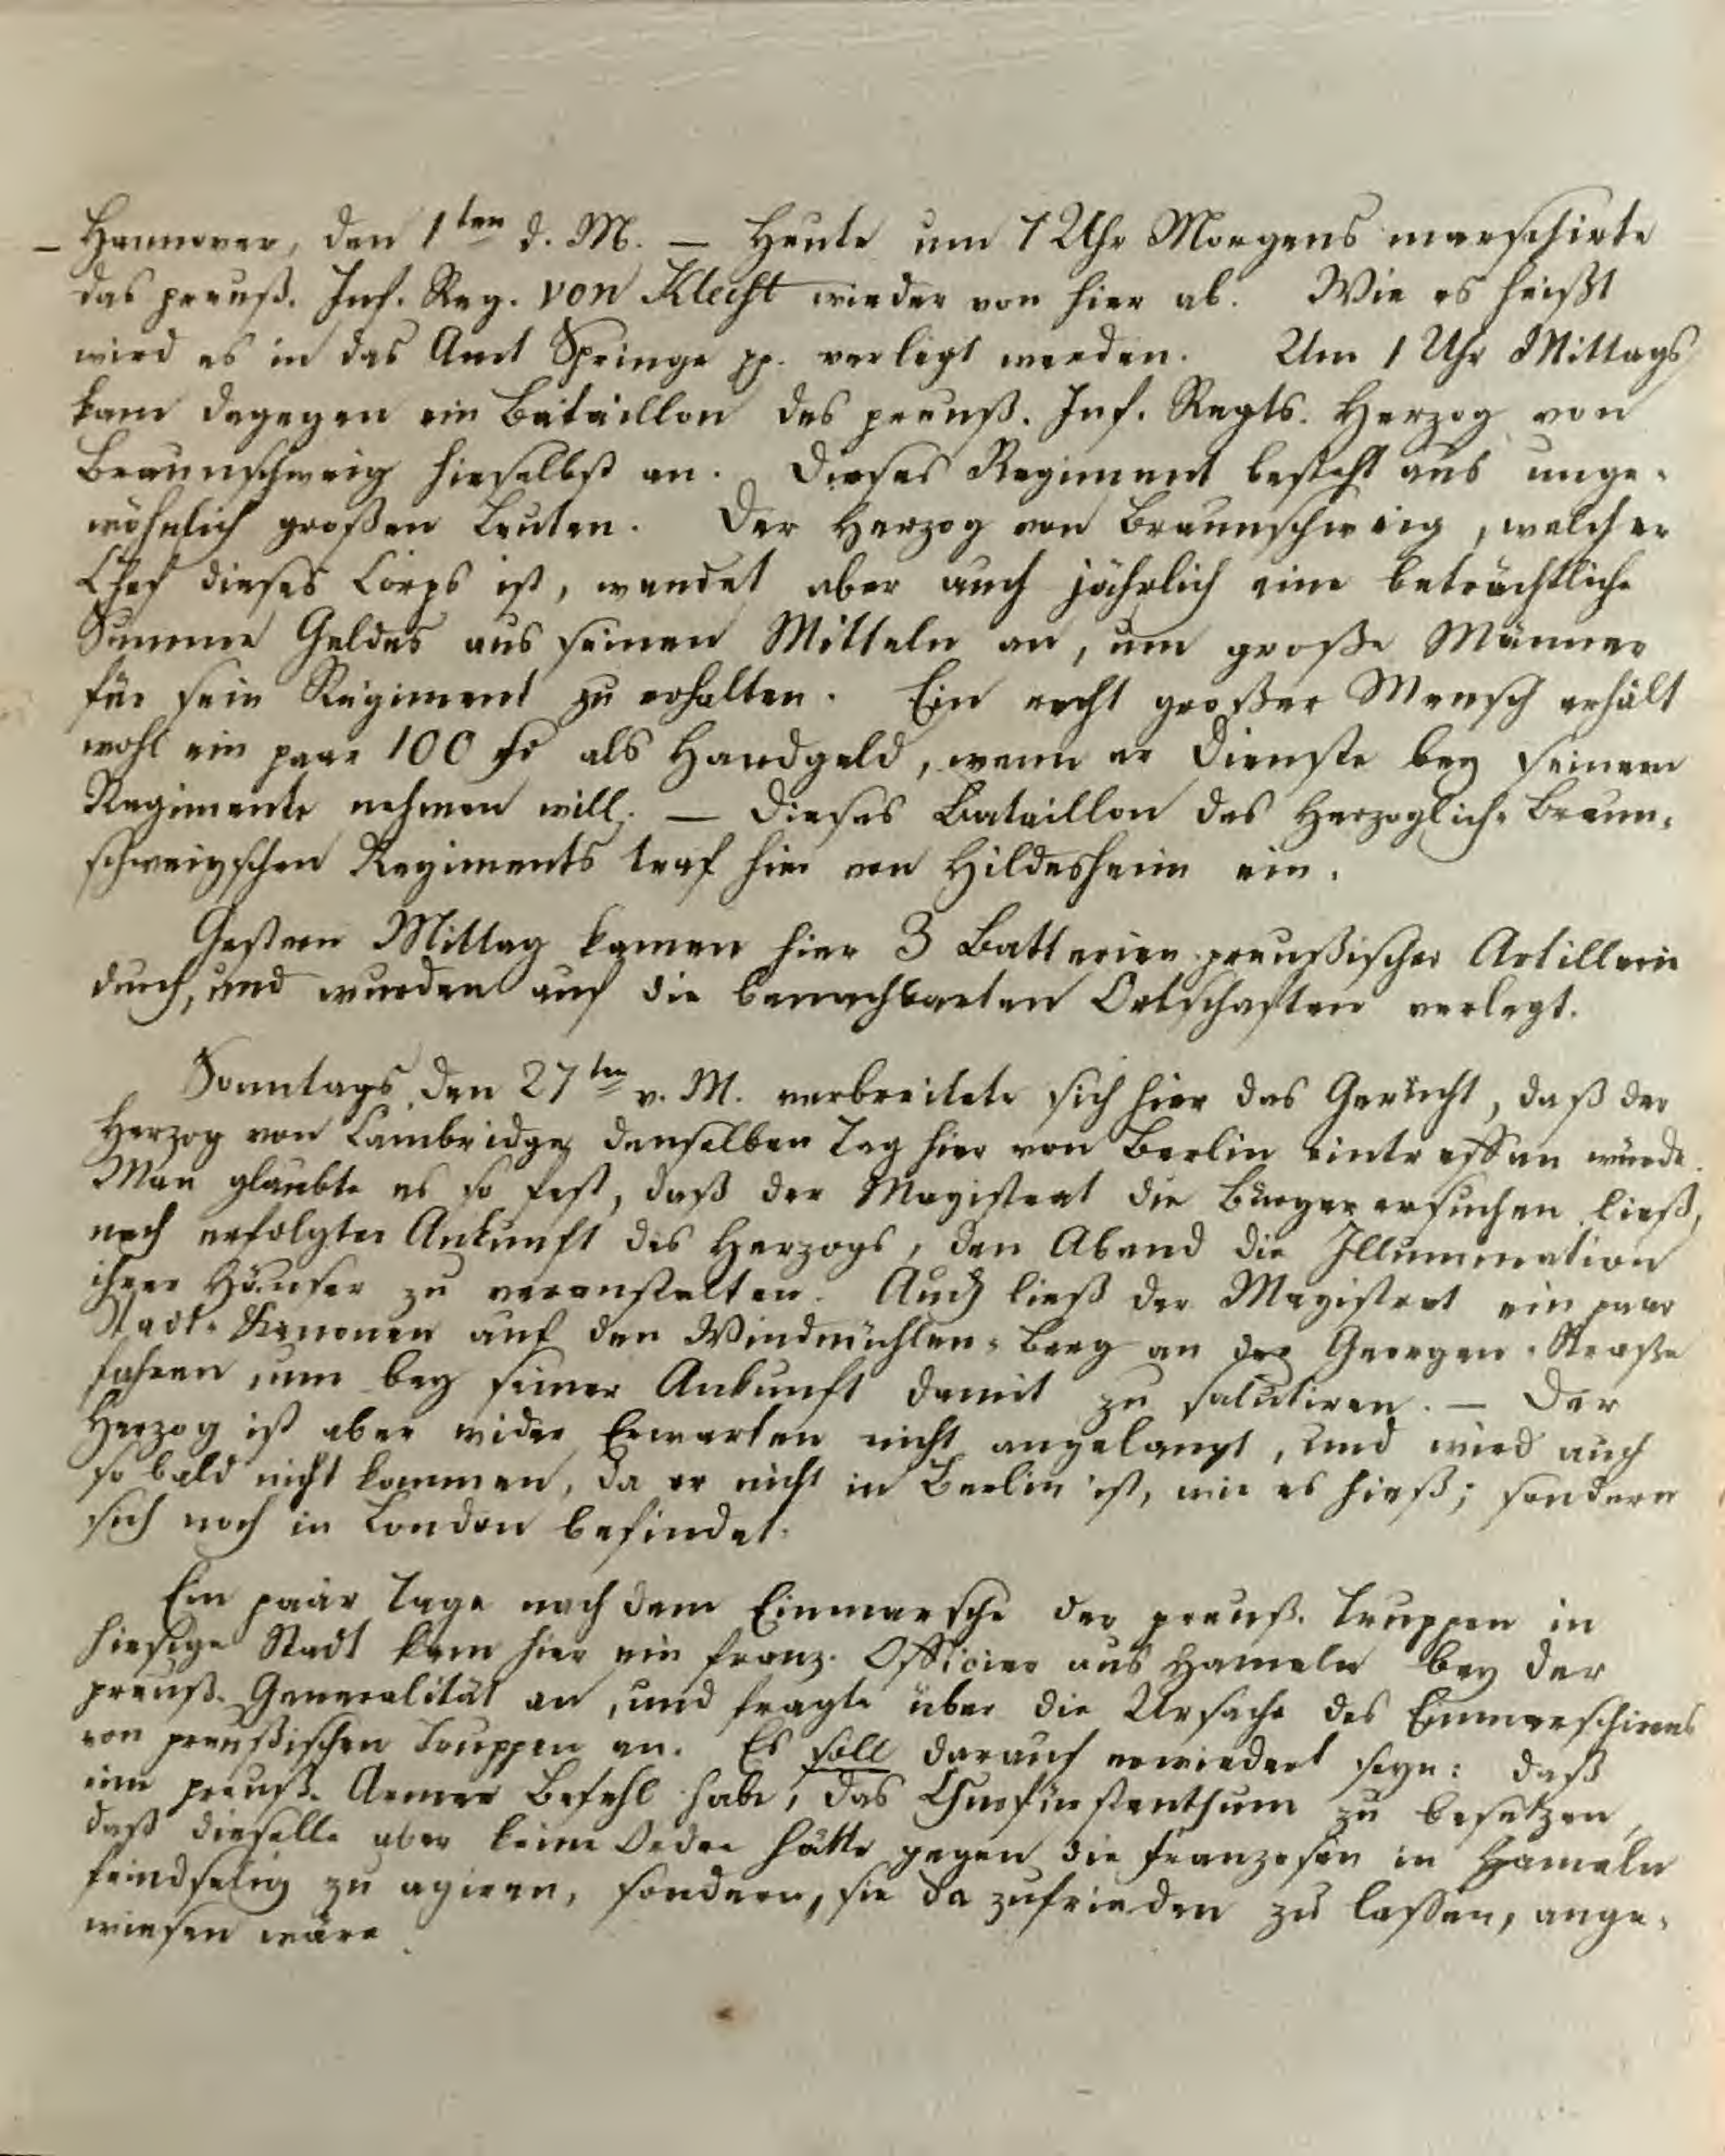 – Hannover, den 1ten d. M. – Heute um 7 Uhr Morgens marschirte
das preuß. Inf. Reg. von Kleist wieder von hier ab. Wie es heißt
wird es in das Amt Springe pp. verlegt werden. Um 1 Uhr Mittags
kam dagegen ein Bataillon des preuß. Inf. Regts. Herzog von
Braunschweig hieselbst an. Dieses Regiment besteht aus unge-
wöhnlich großen Leuten. Der Herzog von Braunschweig, welcher
Chef dieses Corps ist, wendet aber auch jährlich eine beträchtliche
Summe Geldes aus seinen Mitteln an, um große Männer
für sein Regiment zu erhalten. Ein recht großer Mensch erhält
wohl ein paar 100 als Handgeld, wenn er Dienste bey seinem
Regimente nehmen will. – Dieses Bataillon des Herzoglich-Braun-
schweigschen Regiments traf hier von Hildesheim ein.
Gestern Mittag kamen hier 3 Batterien preußischer Artillerie
durch, und wurden auf die benachbarten Ortschaften verlegt.
Sonntags den 27ten v. M. verbreitete sich hier das Gerücht, daß der
Herzog von Cambridge denselben Tag hier von Berlin eintreffen würde.
Man glaubte es so fest, daß der Magistrat die Bürger ersuchen ließ,
nach erfolgter Ankunft des Herzogs, den Abend die Illumination
ihrer Häuser zu veranstalten. Auch ließ der Magistrat ein paar
Stadt-Kanonen auf den Windmühlen-Berg an der Georgen-Straße
fahren, um bey seiner Ankunft damit zu salutiren. – Der
Herzog ist aber wider Erwarten nicht angelangt, und wird auch
so bald nicht kommen, da er nicht in Berlin ist, wie es hieß; sondern
sich noch in London befindet.
Ein paar Tage nach dem Einmarsche der preuß. Truppen in
hiesige Stadt kam hier ein franz. Officier aus Hameln bey der
preuß. Generalität an, und fragte über die Ursache des Einmarschirens
von preußischen Truppen an. Es soll darauf erwiedert seyn: daß
eine preuß. Armee Befehl habe, das Churfürstenthum zu besetzen,
daß dieselbe aber keine Ordre hätte gegen die Franzosen in Hameln
feindselig zu agiren, sondern, sie da zufrieden zu lassen, ange-
wiesen wäre.